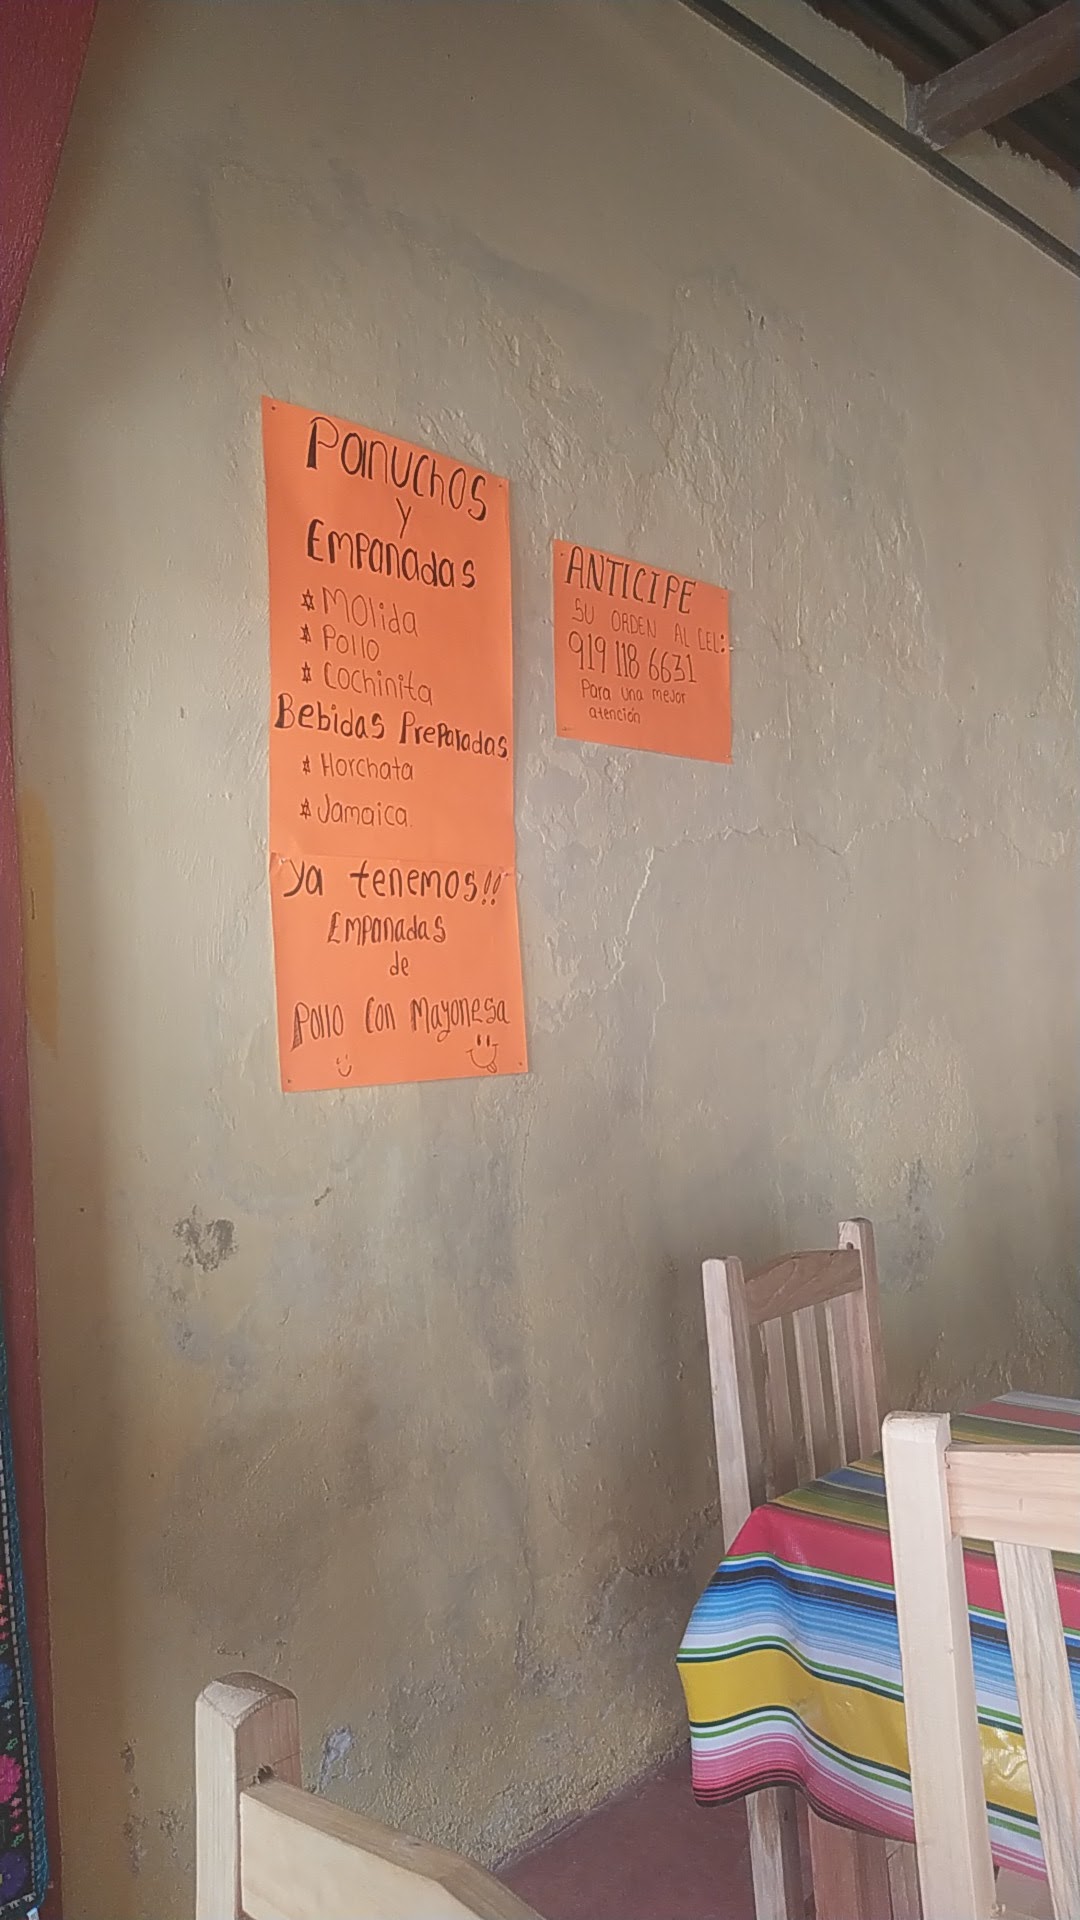 Panuchos
y
Empanadas
* Molida
* Pollo
* Cochinita
Bebidas Preparadas.
* Horchata
* Jamaica.
Ya tenemos!!
Empanadas
de
Pollo Con Mayonesa
ANTICIPE
SU ORDEN AL CEL:
919 118 6631
Para una mejor
atención